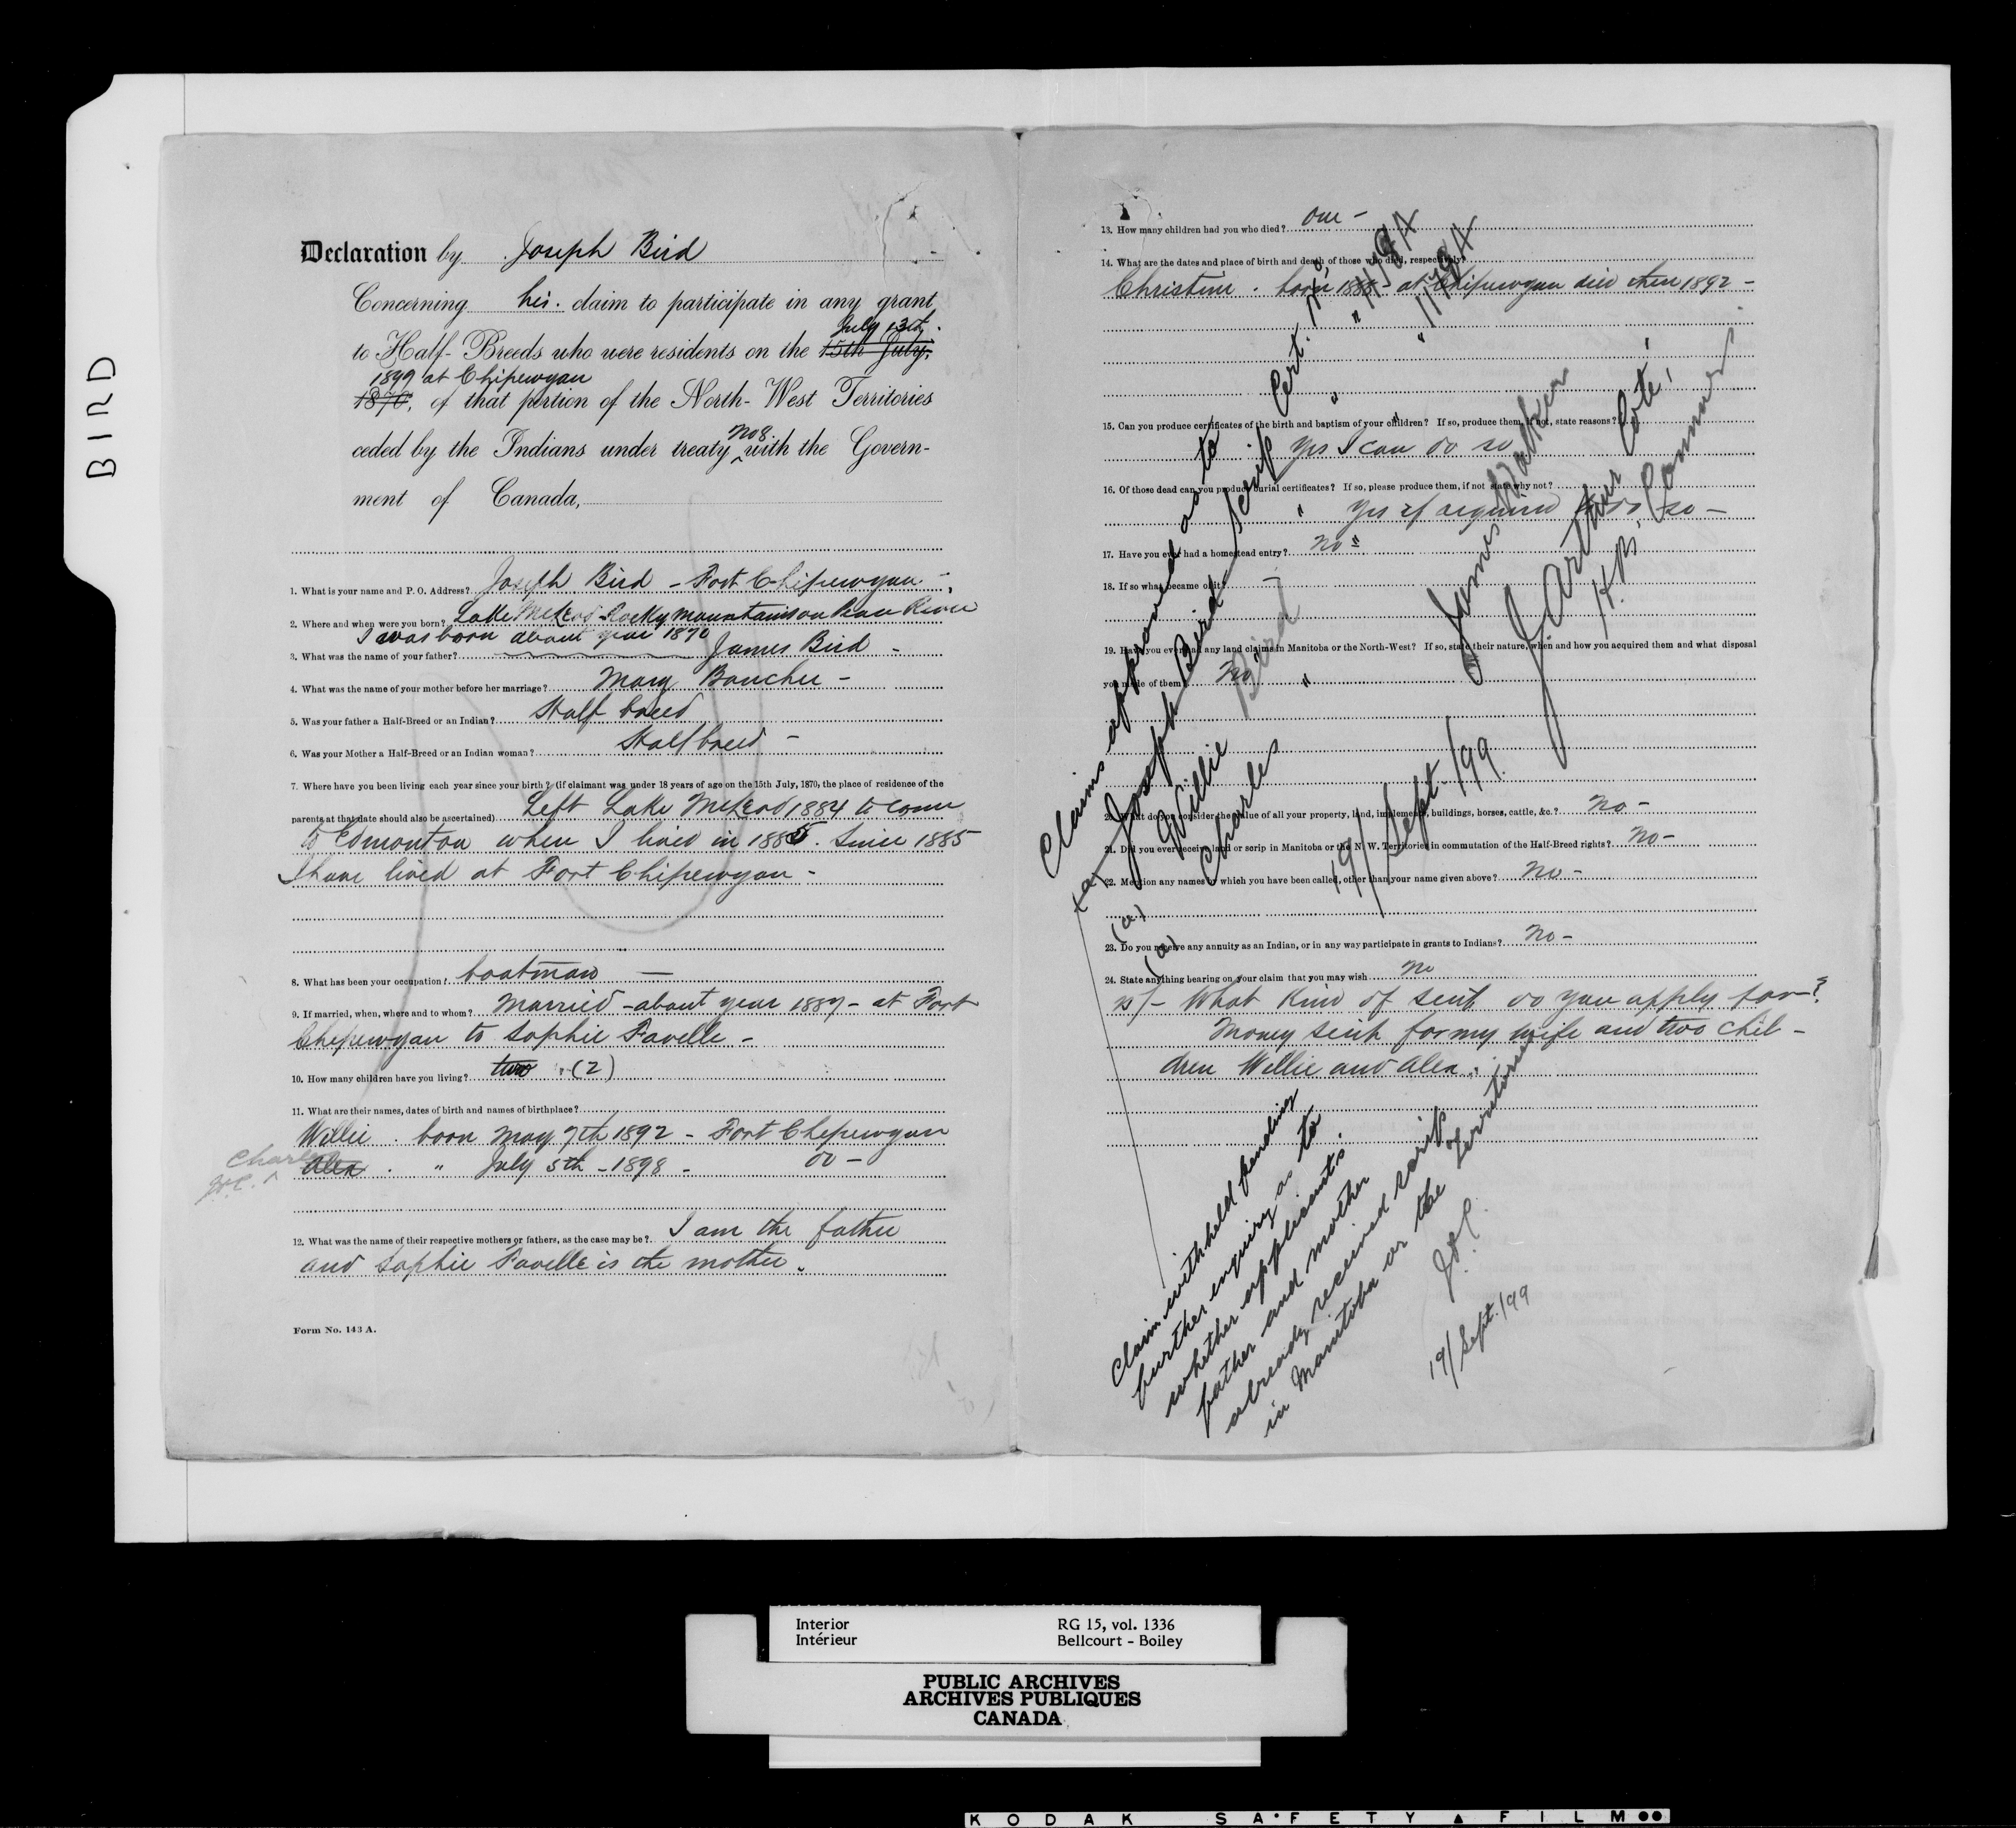 BIRD
Declaration by Joseph Bird
Concerning his claim to participate in any grant
July 13th
to Half-Breeds who were residents on the 15th July,
1899 at Chipewyan
1870, of that portion of the North-West Territories
No 8
ceded by the Indians under treaty with the Govern-
ment of Canada,
1. What is your name and P. O. Address? Joseph Bird - Fort Chipewyan.
2. Where and when were you born? Lake McLeod Rocky Mountains on Peace River
I was born about year 1870
3. What was the name of your father? James Bird -
4. What was the name of your mother before her marriage? Mary Boucher -
5. Was your father a Half-Breed or an Indian? Half breed
6. Was your Mother a Half-Breed or an Indian woman? Half breed -
7. Where have you been living each year since your birth? (if claimant was under 18 years of age on the 15th July, 1870, the place of residence of the
parents at that date should also be ascertained) Left Lake McLeod 1884 to come
to Edmonton when I lived in 1885. Since 1885
I have lived at Fort Chipewyan -
8. What has been your occupation? boatman -
9. If married, when, where and to whom? Married - about year 1887 - at Fort
Chipewyan to Sophie Favelle -
10. How many children have you living? two (2)
11. What are their names, dates of birth and names of birthplace?
Willie . born May 7th 1892 - Fort Chepewyan
Charles
Alex . " July 5th - 1898 - do -
12. What was the name of their respective mothers or fathers, as the case may be? I am the father
and Sophie Favelle is the mother.
Form No. 143 A.
13. How many children had you who died? One -
14. What are the dates and place of birth and death of those who died, respectively?
Christine . born at Chipewyan died then 1892 -
15. Can you produce certificates of the birth and baptism of your children? If so, produce them, if not, state reasons?
Yes I can do so
16. Of those dead can you produce burial certificates? If so, please produce them, if not state why not?
Yes if required to do so -
17. Have you ever had a homestead entry? No
18. If so what became of it? -
19. Have you ever had any land claims in Manitoba or the North-West? If so, state their nature, when and how you acquired them and what disposal
you made of them? No
20. What do you consider the value of all your property, land, implements, buildings, horses, cattle, &c.? No -
21. Did you ever receive land or scrip in Manitoba or the N. W. Territories in commutation of the Half-Breed rights? No -
22. Mention any names by which you have been called, other than your name given above? No -
23. Do you receive any annuity as an Indian, or in any way participate in grants to Indians? No -
24. State anything bearing on your claim that you may wish No
25/- What kind of scrip do you apply for?
Money scrip for my wife and two chil-
dren Willie and Alex.
Claims approved as to
(a) Joseph Bird - scrip Cert. No.
(a) Willie Bird " "
(a) Charles " " "
James Walker
J. Arthur Coté,
H.B. Commrs
19/Sept./99.
Claim withheld pending
further enquiry as to
whether applicant's
father and mother
already received scrip
in Manitoba or the Territories
J.A.C.
19/Sept./99
Interior
Intérieur
RG 15, vol. 1336
Bellcourt - Boiley
PUBLIC ARCHIVES
ARCHIVES PUBLIQUES
CANADA
KODAK SAFETY FILM